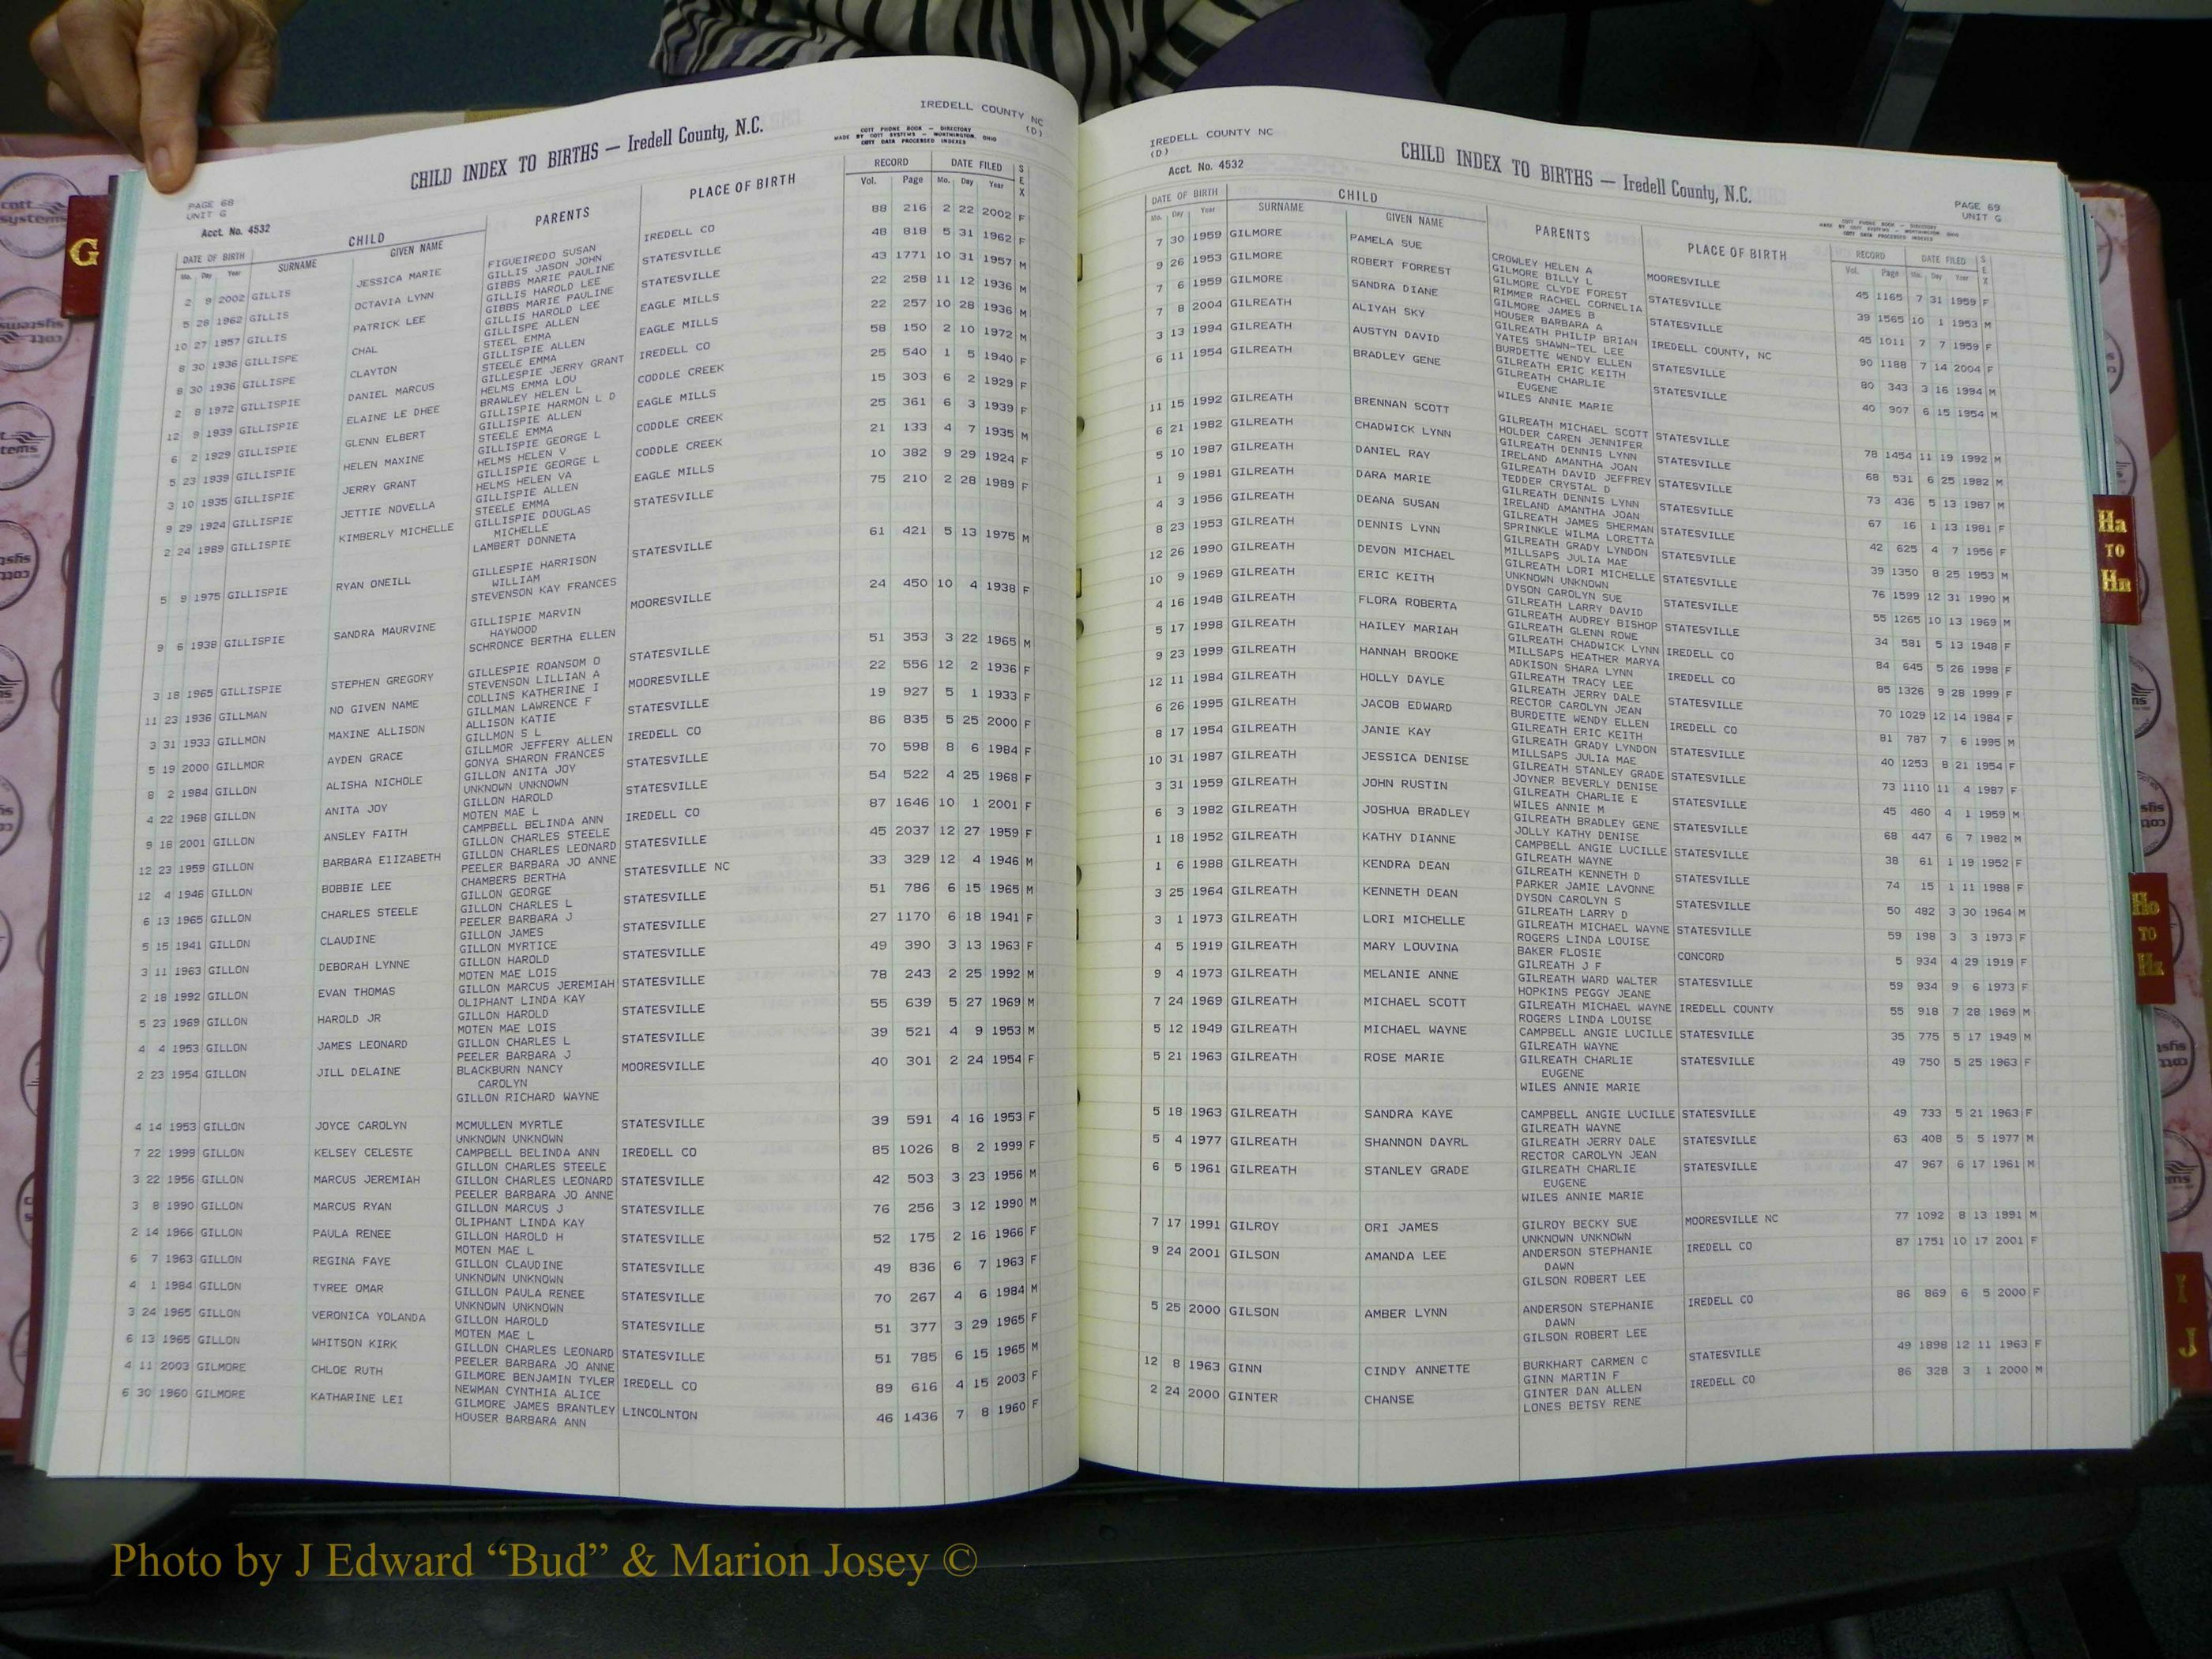 IREDELL COUNTY NC
(D)
CHILD INDEX TO BIRTHS — Iredell County, N.C.
COTT PHONE BOOK — DIRECTORY
MADE BY COTT SYSTEMS — WORTHINGTON, OHIO
COTT DATA PROCESSED INDEXES
PAGE 68
UNIT G
Acct. No. 4532
DATE OF BIRTH CHILD PARENTS PLACE OF BIRTH RECORD DATE FILED SEX
Mo. Day Year SURNAME GIVEN NAME Vol. Page Mo. Day Year
2 9 2002 GILLIS JESSICA MARIE FIGUEIREDO SUSAN IREDELL CO 88 216 2 22 2002 F
GILLIS JASON JOHN
5 28 1962 GILLIS OCTAVIA LYNN GIBBS MARIE PAULINE STATESVILLE 48 818 5 31 1962 F
GILLIS HAROLD LEE
10 27 1957 GILLIS PATRICK LEE GIBBS MARIE PAULINE STATESVILLE 43 1771 10 31 1957 M
GILLIS HAROLD LEE
8 30 1936 GILLISPE CHAL GILLISPE ALLEN EAGLE MILLS 22 258 11 12 1936 M
STEEL EMMA
8 30 1936 GILLISPE CLAYTON GILLISPIE ALLEN EAGLE MILLS 22 257 10 28 1936 M
STEELE EMMA
2 8 1972 GILLISPIE DANIEL MARCUS GILLESPIE JERRY GRANT IREDELL CO 58 150 2 10 1972 M
HELMS EMMA LOU
12 9 1939 GILLISPIE ELAINE LE DHEE BRAWLEY HELEN L CODDLE CREEK 25 540 1 5 1940 F
GILLISPIE HARMON L D
6 2 1929 GILLISPIE GLENN ELBERT GILLISPIE ALLEN EAGLE MILLS 15 303 6 2 1929 F
STEELE EMMA
5 23 1939 GILLISPIE HELEN MAXINE GILLISPIE GEORGE L CODDLE CREEK 25 361 6 3 1939 F
HELMS HELEN V
3 10 1935 GILLISPIE JERRY GRANT GILLISPIE GEORGE L CODDLE CREEK 21 133 4 7 1935 M
HELMS HELEN VA
9 29 1924 GILLISPIE JETTIE NOVELLA GILLISPIE ALLEN EAGLE MILLS 10 382 9 29 1924 F
STEELE EMMA
2 24 1989 GILLISPIE KIMBERLY MICHELLE GILLISPIE DOUGLAS STATESVILLE 75 210 2 28 1989 F
MICHELLE
LAMBERT DONNETA
5 9 1975 GILLISPIE RYAN ONEILL GILLESPIE HARRISON STATESVILLE 61 421 5 13 1975 M
WILLIAM
STEVENSON KAY FRANCES
9 6 1938 GILLISPIE SANDRA MAURVINE GILLISPIE MARVIN MOORESVILLE 24 450 10 4 1938 F
HAYWOOD
SCHRONCE BERTHA ELLEN
3 18 1965 GILLISPIE STEPHEN GREGORY GILLESPIE ROANSOM O STATESVILLE 51 353 3 22 1965 M
STEVENSON LILLIAN A
11 23 1936 GILLMAN NO GIVEN NAME COLLINS KATHERINE I MOORESVILLE 22 556 12 2 1936 F
GILLMAN LAWRENCE F
3 31 1933 GILLMON MAXINE ALLISON ALLISON KATIE STATESVILLE 19 927 5 1 1933 F
GILLMON S L
5 19 2000 GILLMOR AYDEN GRACE GILLMOR JEFFERY ALLEN IREDELL CO 86 835 5 25 2000 F
GONYA SHARON FRANCES
8 2 1984 GILLON ALISHA NICHOLE GILLON ANITA JOY STATESVILLE 70 598 8 6 1984 F
UNKNOWN UNKNOWN
4 22 1968 GILLON ANITA JOY GILLON HAROLD STATESVILLE 54 522 4 25 1968 F
MOTEN MAE L
9 18 2001 GILLON ANSLEY FAITH CAMPBELL BELINDA ANN IREDELL CO 87 1646 10 1 2001 F
GILLON CHARLES STEELE
12 23 1959 GILLON BARBARA ElIZABETH GILLON CHARLES LEONARD STATESVILLE 45 2037 12 27 1959 F
PEELER BARBARA JO ANNE
12 4 1946 GILLON BOBBIE LEE CHAMBERS BERTHA STATESVILLE NC 33 329 12 4 1946 M
GILLON GEORGE
6 13 1965 GILLON CHARLES STEELE GILLON CHARLES L STATESVILLE 51 786 6 15 1965 M
PEELER BARBARA J
5 15 1941 GILLON CLAUDINE GILLON JAMES STATESVILLE 27 1170 6 18 1941 F
GILLON MYRTICE
3 11 1963 GILLON DEBORAH LYNNE GILLON HAROLD STATESVILLE 49 390 3 13 1963 F
MOTEN MAE LOIS
2 18 1992 GILLON EVAN THOMAS GILLON MARCUS JEREMIAH STATESVILLE 78 243 2 25 1992 M
OLIPHANT LINDA KAY
5 23 1969 GILLON HAROLD JR GILLON HAROLD STATESVILLE 55 639 5 27 1969 M
MOTEN MAE LOIS
4 4 1953 GILLON JAMES LEONARD GILLON CHARLES L STATESVILLE 39 521 4 9 1953 M
PEELER BARBARA J
2 23 1954 GILLON JILL DELAINE BLACKBURN NANCY MOORESVILLE 40 301 2 24 1954 F
CAROLYN
GILLON RICHARD WAYNE
4 14 1953 GILLON JOYCE CAROLYN MCMULLEN MYRTLE STATESVILLE 39 591 4 16 1953 F
UNKNOWN UNKNOWN
7 22 1999 GILLON KELSEY CELESTE CAMPBELL BELINDA ANN IREDELL CO 85 1026 8 2 1999 F
GILLON CHARLES STEELE
3 22 1956 GILLON MARCUS JEREMIAH GILLON CHARLES LEONARD STATESVILLE 42 503 3 23 1956 M
PEELER BARBARA JO ANNE
3 8 1990 GILLON MARCUS RYAN GILLON MARCUS J STATESVILLE 76 256 3 12 1990 M
OLIPHANT LINDA KAY
2 14 1966 GILLON PAULA RENEE GILLON HAROLD H STATESVILLE 52 175 2 16 1966 F
MOTEN MAE L
6 7 1963 GILLON REGINA FAYE GILLON CLAUDINE STATESVILLE 49 836 6 7 1963 F
UNKNOWN UNKNOWN
4 1 1984 GILLON TYREE OMAR GILLON PAULA RENEE STATESVILLE 70 267 4 6 1984 M
UNKNOWN UNKNOWN
3 24 1965 GILLON VERONICA YOLANDA GILLON HAROLD STATESVILLE 51 377 3 29 1965 F
MOTEN MAE L
6 13 1965 GILLON WHITSON KIRK GILLON CHARLES LEONARD STATESVILLE 51 785 6 15 1965 M
PEELER BARBARA JO ANNE
4 11 2003 GILMORE CHLOE RUTH GILMORE BENJAMIN TYLER IREDELL CO 89 616 4 15 2003 F
NEWMAN CYNTHIA ALICE
6 30 1960 GILMORE KATHARINE LEI GILMORE JAMES BRANTLEY LINCOLNTON 46 1436 7 8 1960 F
HOUSER BARBARA ANN
IREDELL COUNTY NC
(D)
Acct. No. 4532
CHILD INDEX TO BIRTHS — Iredell County, N.C.
PAGE 69
UNIT G
COTT PHONE BOOK — DIRECTORY
MADE BY COTT SYSTEMS — WORTHINGTON, OHIO
COTT DATA PROCESSED INDEXES
DATE OF BIRTH CHILD PARENTS PLACE OF BIRTH RECORD DATE FILED SEX
Mo. Day Year SURNAME GIVEN NAME Vol. Page Mo. Day Year
7 30 1959 GILMORE PAMELA SUE CROWLEY HELEN A MOORESVILLE 45 1165 7 31 1959 F
GILMORE BILLY L
9 26 1953 GILMORE ROBERT FORREST GILMORE CLYDE FOREST STATESVILLE 39 1565 10 1 1953 M
RIMMER RACHEL CORNELIA
7 6 1959 GILMORE SANDRA DIANE GILMORE JAMES B STATESVILLE 45 1011 7 7 1959 F
HOUSER BARBARA A
7 8 2004 GILREATH ALIYAH SKY GILREATH PHILIP BRIAN IREDELL COUNTY, NC 90 1188 7 14 2004 F
YATES SHAWN-TEL LEE
3 13 1994 GILREATH AUSTYN DAVID BURDETTE WENDY ELLEN STATESVILLE 80 343 3 16 1994 M
GILREATH ERIC KEITH
6 11 1954 GILREATH BRADLEY GENE GILREATH CHARLIE STATESVILLE 40 907 6 15 1954 M
EUGENE
WILES ANNIE MARIE
11 15 1992 GILREATH BRENNAN SCOTT GILREATH MICHAEL SCOTT STATESVILLE 78 1454 11 19 1992 M
HOLDER CAREN JENNIFER
6 21 1982 GILREATH CHADWICK LYNN GILREATH DENNIS LYNN STATESVILLE 68 531 6 25 1982 M
IRELAND AMANTHA JOAN
5 10 1987 GILREATH DANIEL RAY GILREATH DAVID JEFFREY STATESVILLE 73 436 5 13 1987 M
TEDDER CRYSTAL D
1 9 1981 GILREATH DARA MARIE GILREATH DENNIS LYNN STATESVILLE 67 16 1 13 1981 F
IRELAND AMANTHA JOAN
4 3 1956 GILREATH DEANA SUSAN GILREATH JAMES SHERMAN STATESVILLE 42 625 4 7 1956 F
SPRINKLE WILMA LORETTA
8 23 1953 GILREATH DENNIS LYNN GILREATH GRADY LYNDON STATESVILLE 39 1350 8 25 1953 M
MILLSAPS JULIA MAE
12 26 1990 GILREATH DEVON MICHAEL GILREATH LORI MICHELLE STATESVILLE 76 1599 12 31 1990 M
UNKNOWN UNKNOWN
10 9 1969 GILREATH ERIC KEITH DYSON CAROLYN SUE STATESVILLE 55 1265 10 13 1969 M
GILREATH LARRY DAVID
4 16 1948 GILREATH FLORA ROBERTA GILREATH AUDREY BISHOP STATESVILLE 34 581 5 13 1948 F
GILREATH GLENN ROWE
5 17 1998 GILREATH HAILEY MARIAH GILREATH CHADWICK LYNN IREDELL CO 84 645 5 26 1998 F
MILLSAPS HEATHER MARYA
9 23 1999 GILREATH HANNAH BROOKE ADKISON SHARA LYNN IREDELL CO 85 1326 9 28 1999 F
GILREATH TRACY LEE
12 11 1984 GILREATH HOLLY DAYLE GILREATH JERRY DALE STATESVILLE 70 1029 12 14 1984 F
RECTOR CAROLYN JEAN
6 26 1995 GILREATH JACOB EDWARD BURDETTE WENDY ELLEN IREDELL CO 81 787 7 6 1995 M
GILREATH ERIC KEITH
8 17 1954 GILREATH JANIE KAY GILREATH GRADY LYNDON STATESVILLE 40 1253 8 21 1954 F
MILLSAPS JULIA MAE
10 31 1987 GILREATH JESSICA DENISE GILREATH STANLEY GRADE STATESVILLE 73 1110 11 4 1987 F
JOYNER BEVERLY DENISE
3 31 1959 GILREATH JOHN RUSTIN GILREATH CHARLIE E STATESVILLE 45 460 4 1 1959 M
WILES ANNIE M
6 3 1982 GILREATH JOSHUA BRADLEY GILREATH BRADLEY GENE STATESVILLE 68 447 6 7 1982 M
JOLLY KATHY DENISE
1 18 1952 GILREATH KATHY DIANNE CAMPBELL ANGIE LUCILLE STATESVILLE 38 61 1 19 1952 F
GILREATH WAYNE
1 6 1988 GILREATH KENDRA DEAN GILREATH KENNETH D STATESVILLE 74 15 1 11 1988 F
PARKER JAMIE LAVONNE
3 25 1964 GILREATH KENNETH DEAN DYSON CAROLYN S STATESVILLE 50 482 3 30 1964 M
GILREATH LARRY D
3 1 1973 GILREATH LORI MICHELLE GILREATH MICHAEL WAYNE STATESVILLE 59 198 3 3 1973 F
ROGERS LINDA LOUISE
4 5 1919 GILREATH MARY LOUVINA BAKER FLOSIE CONCORD 5 934 4 29 1919 F
GILREATH J F
9 4 1973 GILREATH MELANIE ANNE GILREATH WARD WALTER STATESVILLE 59 934 9 6 1973 F
HOPKINS PEGGY JEANE
7 24 1969 GILREATH MICHAEL SCOTT GILREATH MICHAEL WAYNE IREDELL COUNTY 55 918 7 28 1969 M
ROGERS LINDA LOUISE
5 12 1949 GILREATH MICHAEL WAYNE CAMPBELL ANGIE LUCILLE STATESVILLE 35 775 5 17 1949 M
GILREATH WAYNE
5 21 1963 GILREATH ROSE MARIE GILREATH CHARLIE STATESVILLE 49 750 5 25 1963 F
EUGENE
WILES ANNIE MARIE
5 18 1963 GILREATH SANDRA KAYE CAMPBELL ANGIE LUCILLE STATESVILLE 49 733 5 21 1963 F
GILREATH WAYNE
5 4 1977 GILREATH SHANNON DAYRL GILREATH JERRY DALE STATESVILLE 63 408 5 5 1977 M
RECTOR CAROLYN JEAN
6 5 1961 GILREATH STANLEY GRADE GILREATH CHARLIE STATESVILLE 47 967 6 17 1961 M
EUGENE
WILES ANNIE MARIE
7 17 1991 GILROY ORI JAMES GILROY BECKY SUE MOORESVILLE NC 77 1092 8 13 1991 M
UNKNOWN UNKNOWN
9 24 2001 GILSON AMANDA LEE ANDERSON STEPHANIE IREDELL CO 87 1751 10 17 2001 F
DAWN
GILSON ROBERT LEE
5 25 2000 GILSON AMBER LYNN ANDERSON STEPHANIE IREDELL CO 86 869 6 5 2000 F
DAWN
GILSON ROBERT LEE
12 8 1963 GINN CINDY ANNETTE BURKHART CARMEN C STATESVILLE 49 1898 12 11 1963 F
GINN MARTIN F
2 24 2000 GINTER CHANSE GINTER DAN ALLEN IREDELL CO 86 328 3 1 2000 M
LONES BETSY RENE
G
Ha
TO
Hn
Ho
TO
Hz
I
J
Photo by J Edward “Bud” & Marion Josey ©